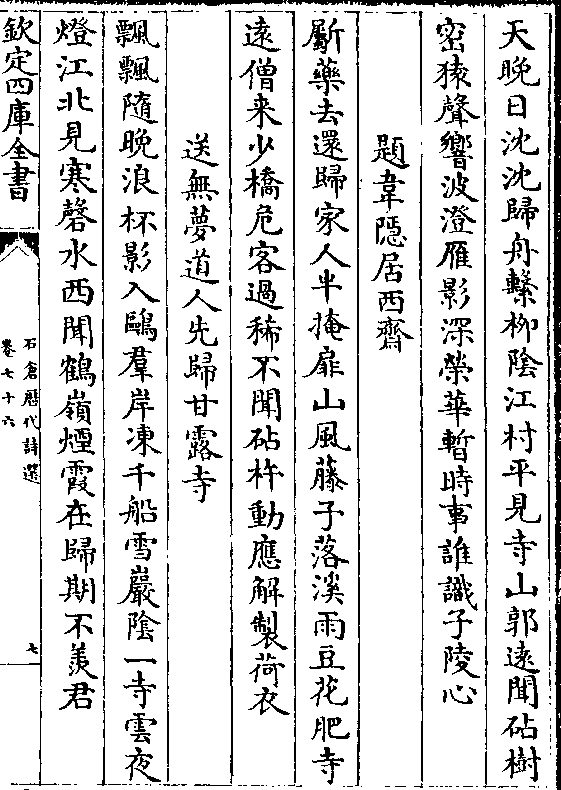 天晩日沈沈歸舟繫柳陰江村平見寺山郭遠聞砧樹
密猿聲響波澄雁影深榮華暫時事誰識子陵心
題韋隱居西齋
斸藥去還歸家人半掩扉山風藤子落溪雨豆花肥寺
逺僧来少橋危客過稀不聞砧杵動應解製荷衣
送無夢道人先歸甘露寺
飄飄隨晚浪杯影入鷗羣岸凍千船雪巖陰一寺雲夜
燈江北見寒磬水西聞鶴嶺煙霞在歸期不羨君
欽定四庫全書
石倉歷代詩選
卷七十六
七